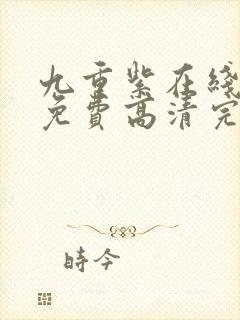 九重紫在线
免费高清完
時今